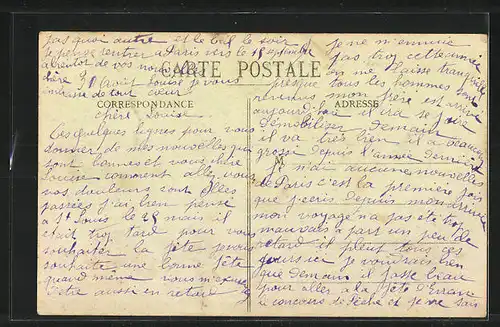 pas quoi autre et le bal le soir
je pense rentrer a Paris vers le 15 septembre
a bientot de vos nouvelles
chère Louise je vous
embrasse de tout coeur
CARTE POSTALE
CORRESPONDANCE
ADRESSE
chère Louise
Ces quelques lignes pour vous
donner de mes nouvelles qui
sont bonnes et vous chère
Louise comment allez vous
vos douleurs sont elles
passées j'ai bien pensé
a St Louis le 25 mais il
était trop tard pour vous
souhaiter la fête je vous
souhaite une bonne fête
quand meme vous m'excuserez
d'être aussi en retard
je ne m'ennuie
pas trop cette année
on me laisse tranquille
presque tous les hommes sont
revenus mon frère est arrivé
aujourd'hui il ira se faire
démobiliser demain
il va très bien il a beaucoup
grossi depuis l'année dernière
M
je n'ai aucune nouvelle
de Paris c'est la première fois
que j'écris depuis mon arrivée
mon voyage n'a pas été trop
mauvais a part un peu de
retard il pleut tous ces
jours-ci je voudrais bien
que demain il fasse beau
pour aller a la fête
concours de Pêche et je ne sais